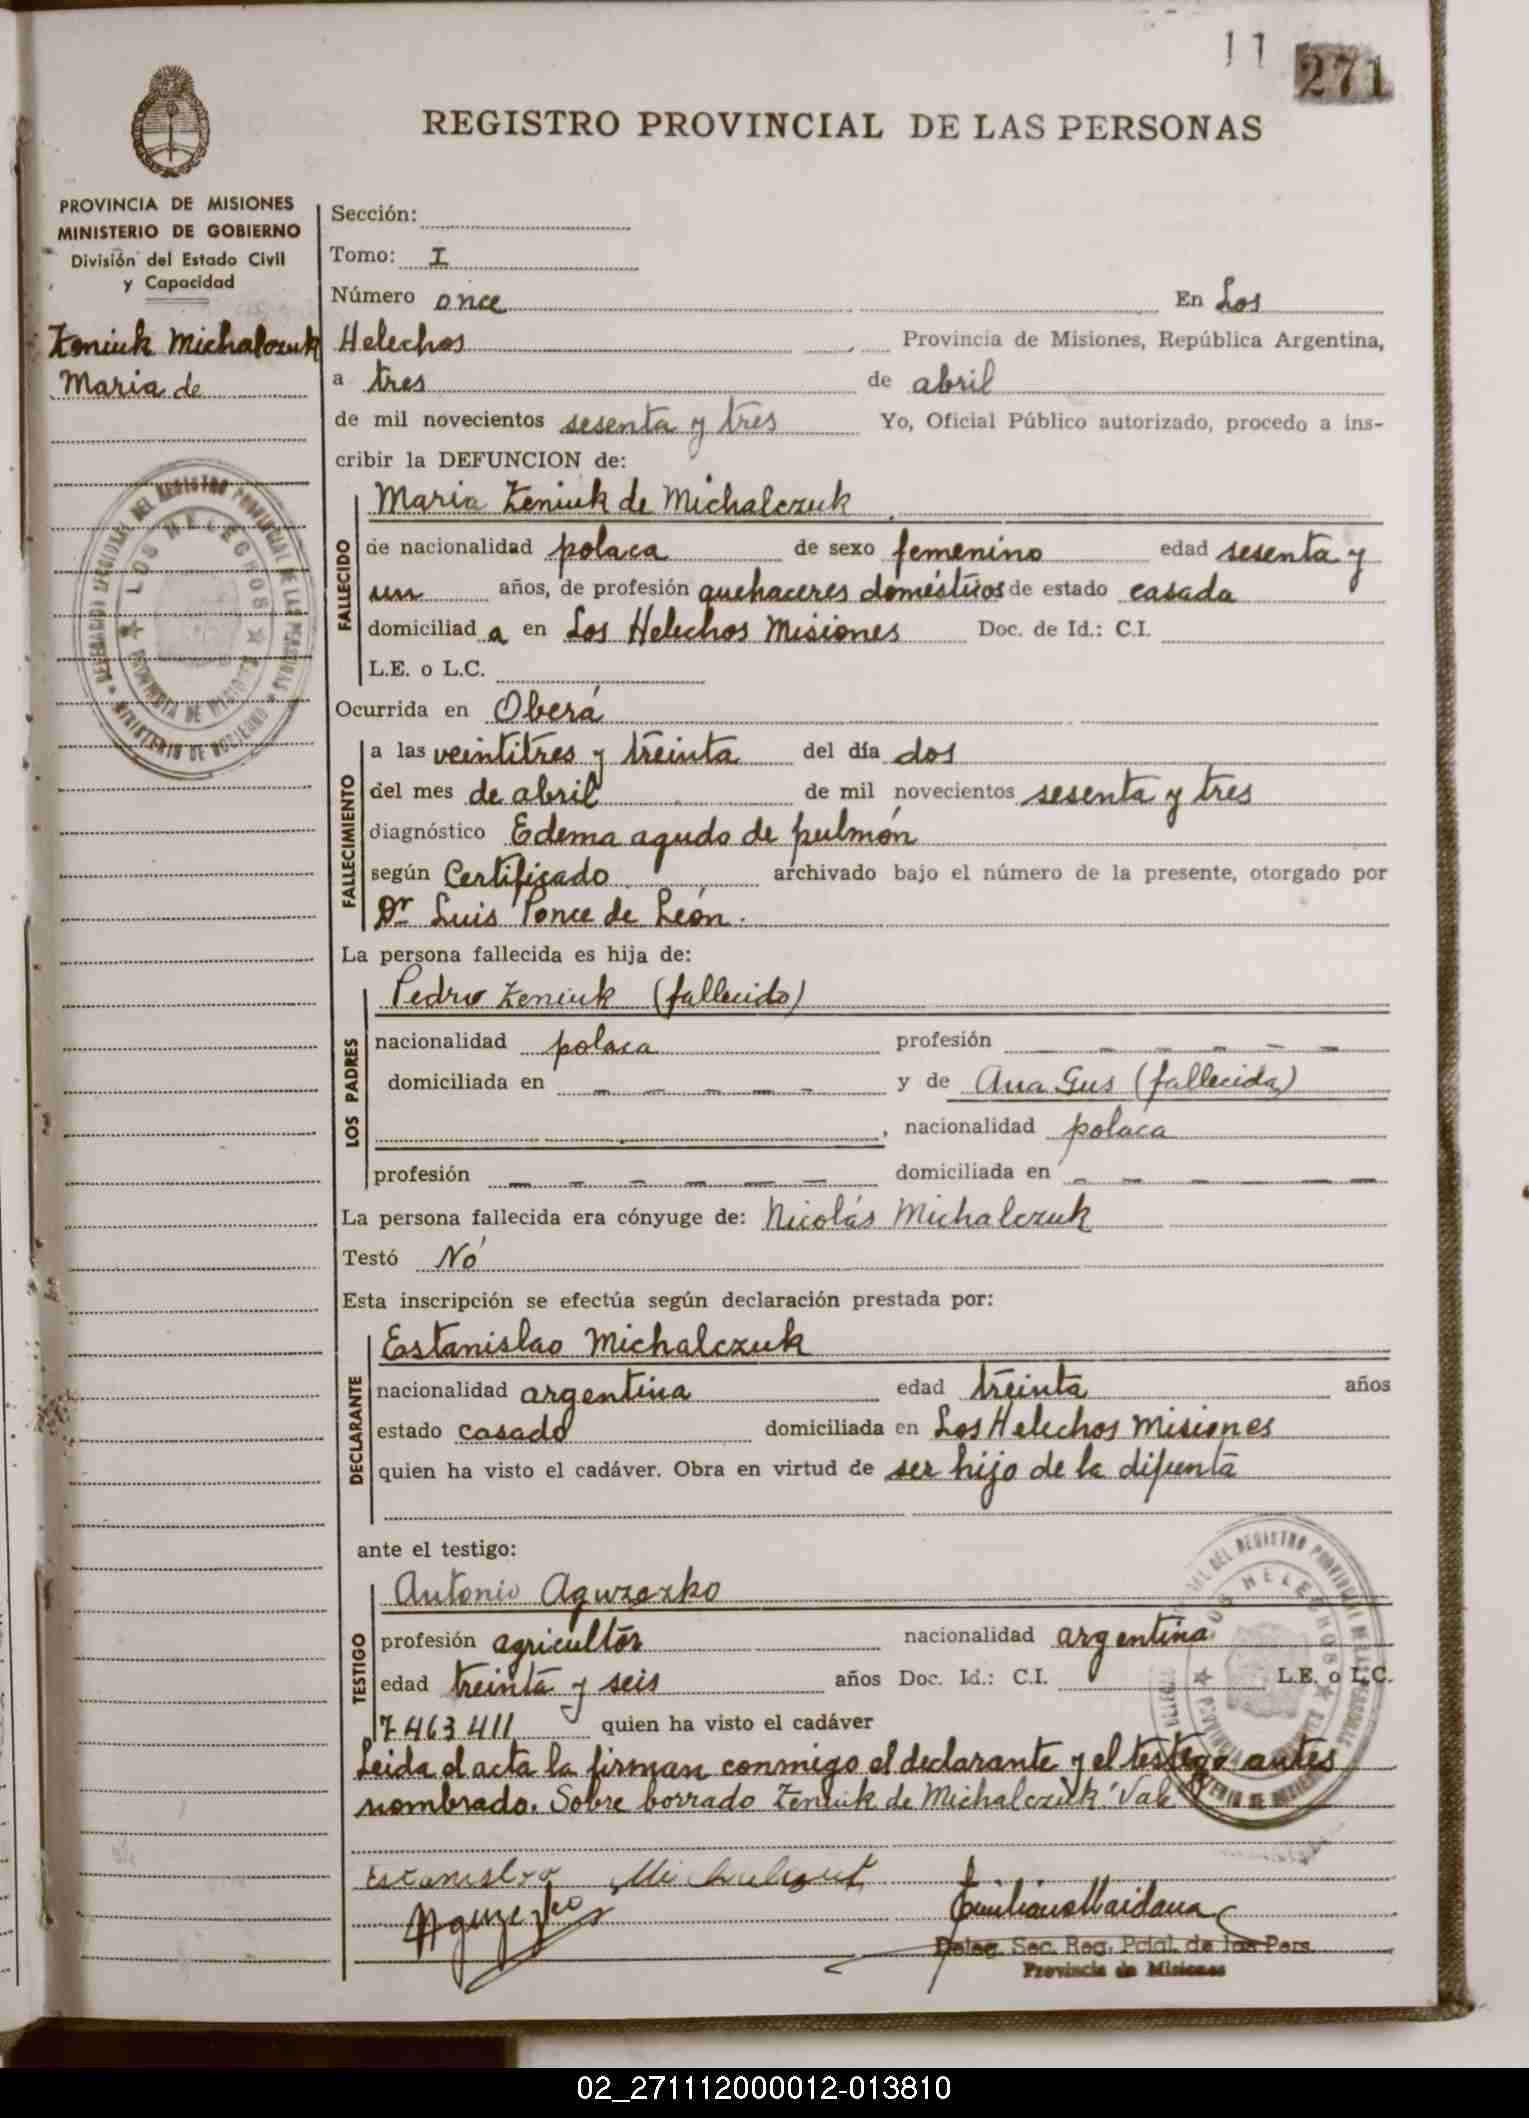 11 271
REGISTRO PROVINCIAL DE LAS PERSONAS
PROVINCIA DE MISIONES
MINISTERIO DE GOBIERNO
División del Estado Civil
y Capacidad
Zeniuk Michalczuk
Maria de
Sección:
Tomo: I
Número once En Los
Helechos Provincia de Misiones, República Argentina,
a tres de abril
de mil novecientos sesenta y tres Yo, Oficial Público autorizado, procedo a ins-
cribir la DEFUNCION de:
FALLECIDO
Maria Zeniuk de Michalczuk
de nacionalidad polaca de sexo femenino edad sesenta y
un años, de profesión quehaceres domésticos de estado casada
domiciliad a en Los Helechos Misiones Doc. de Id.: C.I.
L.E. o L.C.
Ocurrida en Oberá
FALLECIMIENTO
a las veintitres y treinta del día dos
del mes de abril de mil novecientos sesenta y tres
diagnóstico Edema agudo de pulmón
según Certificado archivado bajo el número de la presente, otorgado por
Dr Luis Ponce de León.
La persona fallecida es hija de:
LOS PADRES
Pedro Zeniuk (fallecido)
nacionalidad polaca profesión – – – – –
domiciliada en – – – – – y de Ana Gus (fallecida)
, nacionalidad polaca
profesión – – – – – – domiciliada en – – – – – –
La persona fallecida era cónyuge de: Nicolás Michalczuk
Testó No
Esta inscripción se efectúa según declaración prestada por:
DECLARANTE
Estanislao Michalczuk
nacionalidad argentina edad treinta años
estado casado domiciliada en Los Helechos Misiones
quien ha visto el cadáver. Obra en virtud de ser hijo de la difunta
ante el testigo:
TESTIGO
Antonio Aguzezko
profesión agricultor nacionalidad argentina
edad treinta y seis años Doc. Id.: C.I. L.E. o L.C.
7463411 quien ha visto el cadáver
Leida el acta la firman conmigo el declarante y el testigo antes
nombrado. Sobre borrado Zeniuk de Michalczuk: Vale
Estanislao Michalczuk
Emiliano Maidana
Deleg. Sec. Reg. Pcial. de las Pers.
Provincia de Misiones
02_271112000012-013810